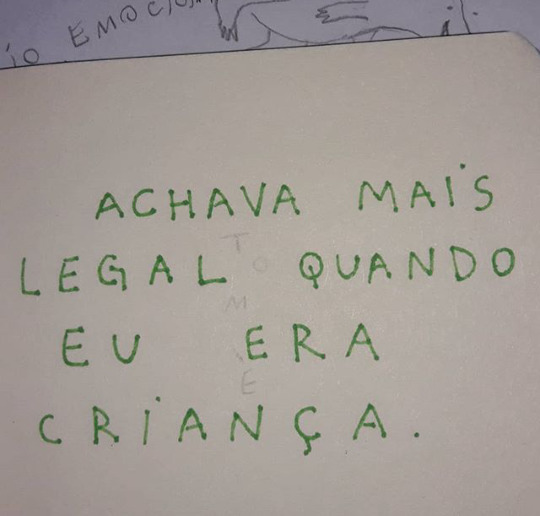 IO EMOCION
ACHAVA MAIS
LEGAL QUANDO
EU ERA
CRIANÇA.